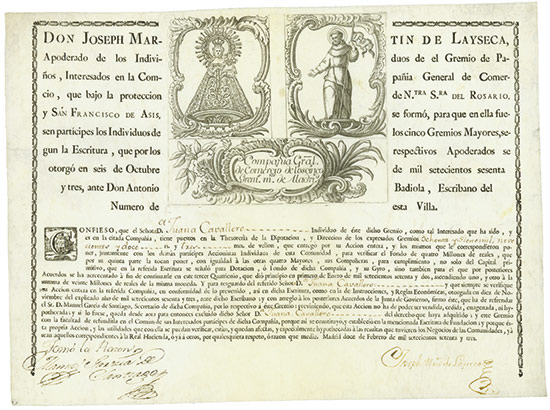 DON JOSEPH MARTIN DE LAYSECA,
Apoderado de los Individuos de el Gremio de Pa-
ños, Interesados en la Compañia General de Comer-
cio, que bajo la proteccion de N.TRA S.RA DEL ROSARIO,
y SAN FRANCISCO DE ASIS, se formó, para que en ella fue-
sen participes los Individuos de los cinco Gremios Mayores, se-
gun la Escritura, que por los respectivos Apoderados se
otorgó en seis de Octubre de mil setecientos sesenta
y tres, ante Don Antonio Badiola, Escribano del
Numero de esta Villa.
Compañia Gral.
de Comercio de los cinco
Grem.s m.s de Madrid
CONFIESO, que el Señor D.a Juana Cavallero Individuo de éste dicho Gremio, como tal Interesado que ha sido, y
es en la citada Compañia, tiene puestos en la Thesoreria de la Diputacion, y Direccion de los expresados Gremios
cientos y Ocho rs. y trece mrs. de vellon, que entregó por su Accion entera, y los mismos que le correspondieron po-
ner, juntamente con los demás participes Accionistas Individuos de esta Comunidad, para verificar el fondo de quatro Millones de reales, que
por su quinta parte la tocan poner, con igualdad à las otras quatro Mayores, sus Compartes, para cumplimiento, no solo del Capital pri-
mitivo, que en la referida Escritura se señaló para Dotacion, ò fondo de dicha Compañia, y su Giro, sino tambien para el que por posteriores
Acuerdos se ha acrecentado à fin de continuarla en este tercer Quatrienio, que dió principio en primero de Enero de mil setecientos setenta y dos, uno a la
suma de veinte Millones de reales de la misma moneda. Y para resguardo del referido Señor D.a Juana Cavallero y que siempre se verifique
su Accion entera en la referida Compañia, en conformidad de lo prevenido, asi en dicha Escritura, como en la de Instrucciones, y Reglas Economicas, otorgada en diez de No-
viembre del explicado año de mil setecientos sesenta y tres, ante dicho Escribano y con arreglo à los posteriores Acuerdos de la Junta de Govierno, firmo éste, que ha de refrendar
el Sr. D. Manuel Garcia de Santiago, Secretario de dicha Compañia, con expresion, de que esta Accion no ha de poder ser vendida, cedida, enagenada, ni hy-
pothecada y si lo fuese, queda desde aora para entonces excluido dicho Señor D.a Juana Cavallero del derecho que haya adquirido; y este Gremio
con la facultad de refundirla en el Comun de sus Interesados participes de dicha Compañia, porque asi se constituyó, y estableció en la mencionada Escritura de Fundacion; y porque és-
ta propia Accion, y las utilidades que con ella se puedan verificar, estén, y quedan afectas, y especialmente hypothecadas à las resultas que tuvieren los Negocios de las Comunidades, yà
sean aquellos correspondientes à la Real Hacienda, ò yà à otros, por qualquiera respeto, ò razon que sea. Madrid doce de Febrero de mil setecientos setenta y
Tomé la Razon
Manuel Garcia de
Santiago
Joseph Mrn. de Layseca